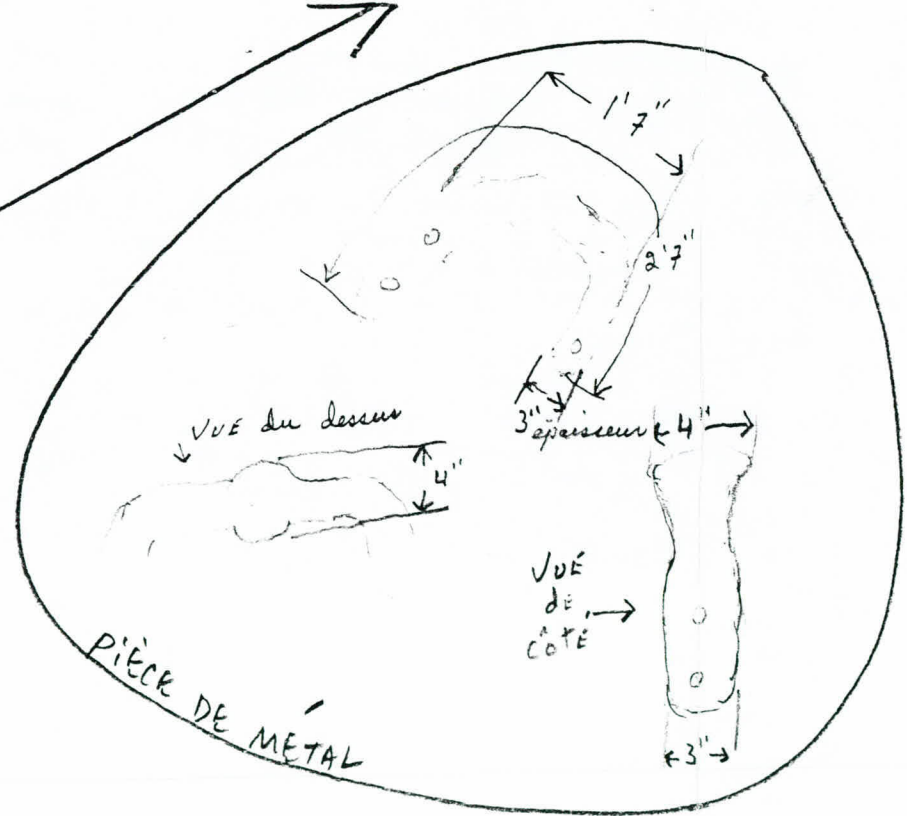 1' 7"
2'7"
3" épaisseur
4"
VUE du dessus
4"
VUÉ
de
CÔTÉ
3"
PIÈCE DE MÉTAL